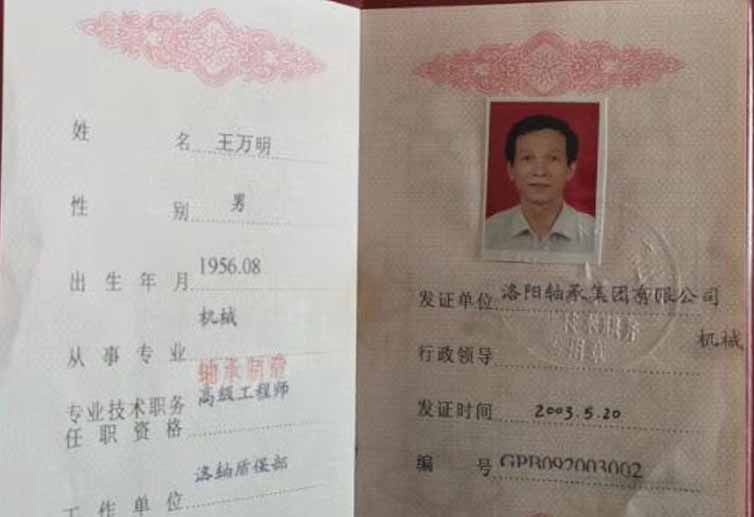 姓名 王万明
性别 男
出生年月 1956.08
从事专业 机械
轴承制造
专业技术职务任职资格 高级工程师
工作单位 洛轴质保部
发证单位 洛阳轴承集团有限公司
机械
行政领导
发证时间 2003.5.20
编号 GPB092003002